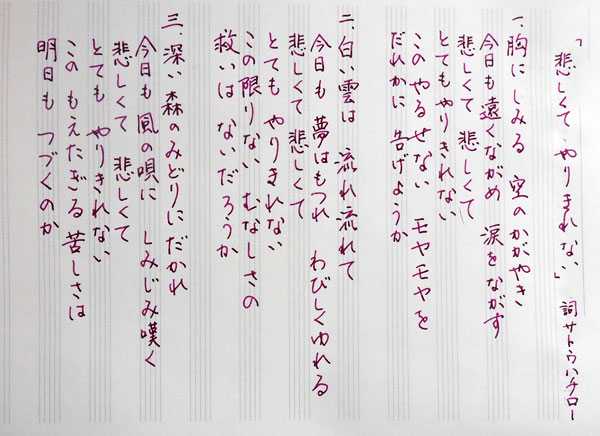 「悲しくてやりきれない」 詞 サトウハチロー
一、胸にしみる 空のかがやき
今日も遠くながめ 涙をながす
悲しくて 悲しくて
とてもやりきれない
このやるせない モヤモヤを
だれかに 告げようか
二、白い雲は 流れ流れて
今日も 夢はもつれ わびしくゆれる
悲しくて 悲しくて
とても やりきれない
この限りない むなしさの
救いは ないだろうか
三、深い森のみどりにだかれ
今日も 風の唄に しみじみ嘆く
悲しくて 悲しくて
とても やりきれない
この もえたぎる 苦しさは
明日も つづくのか